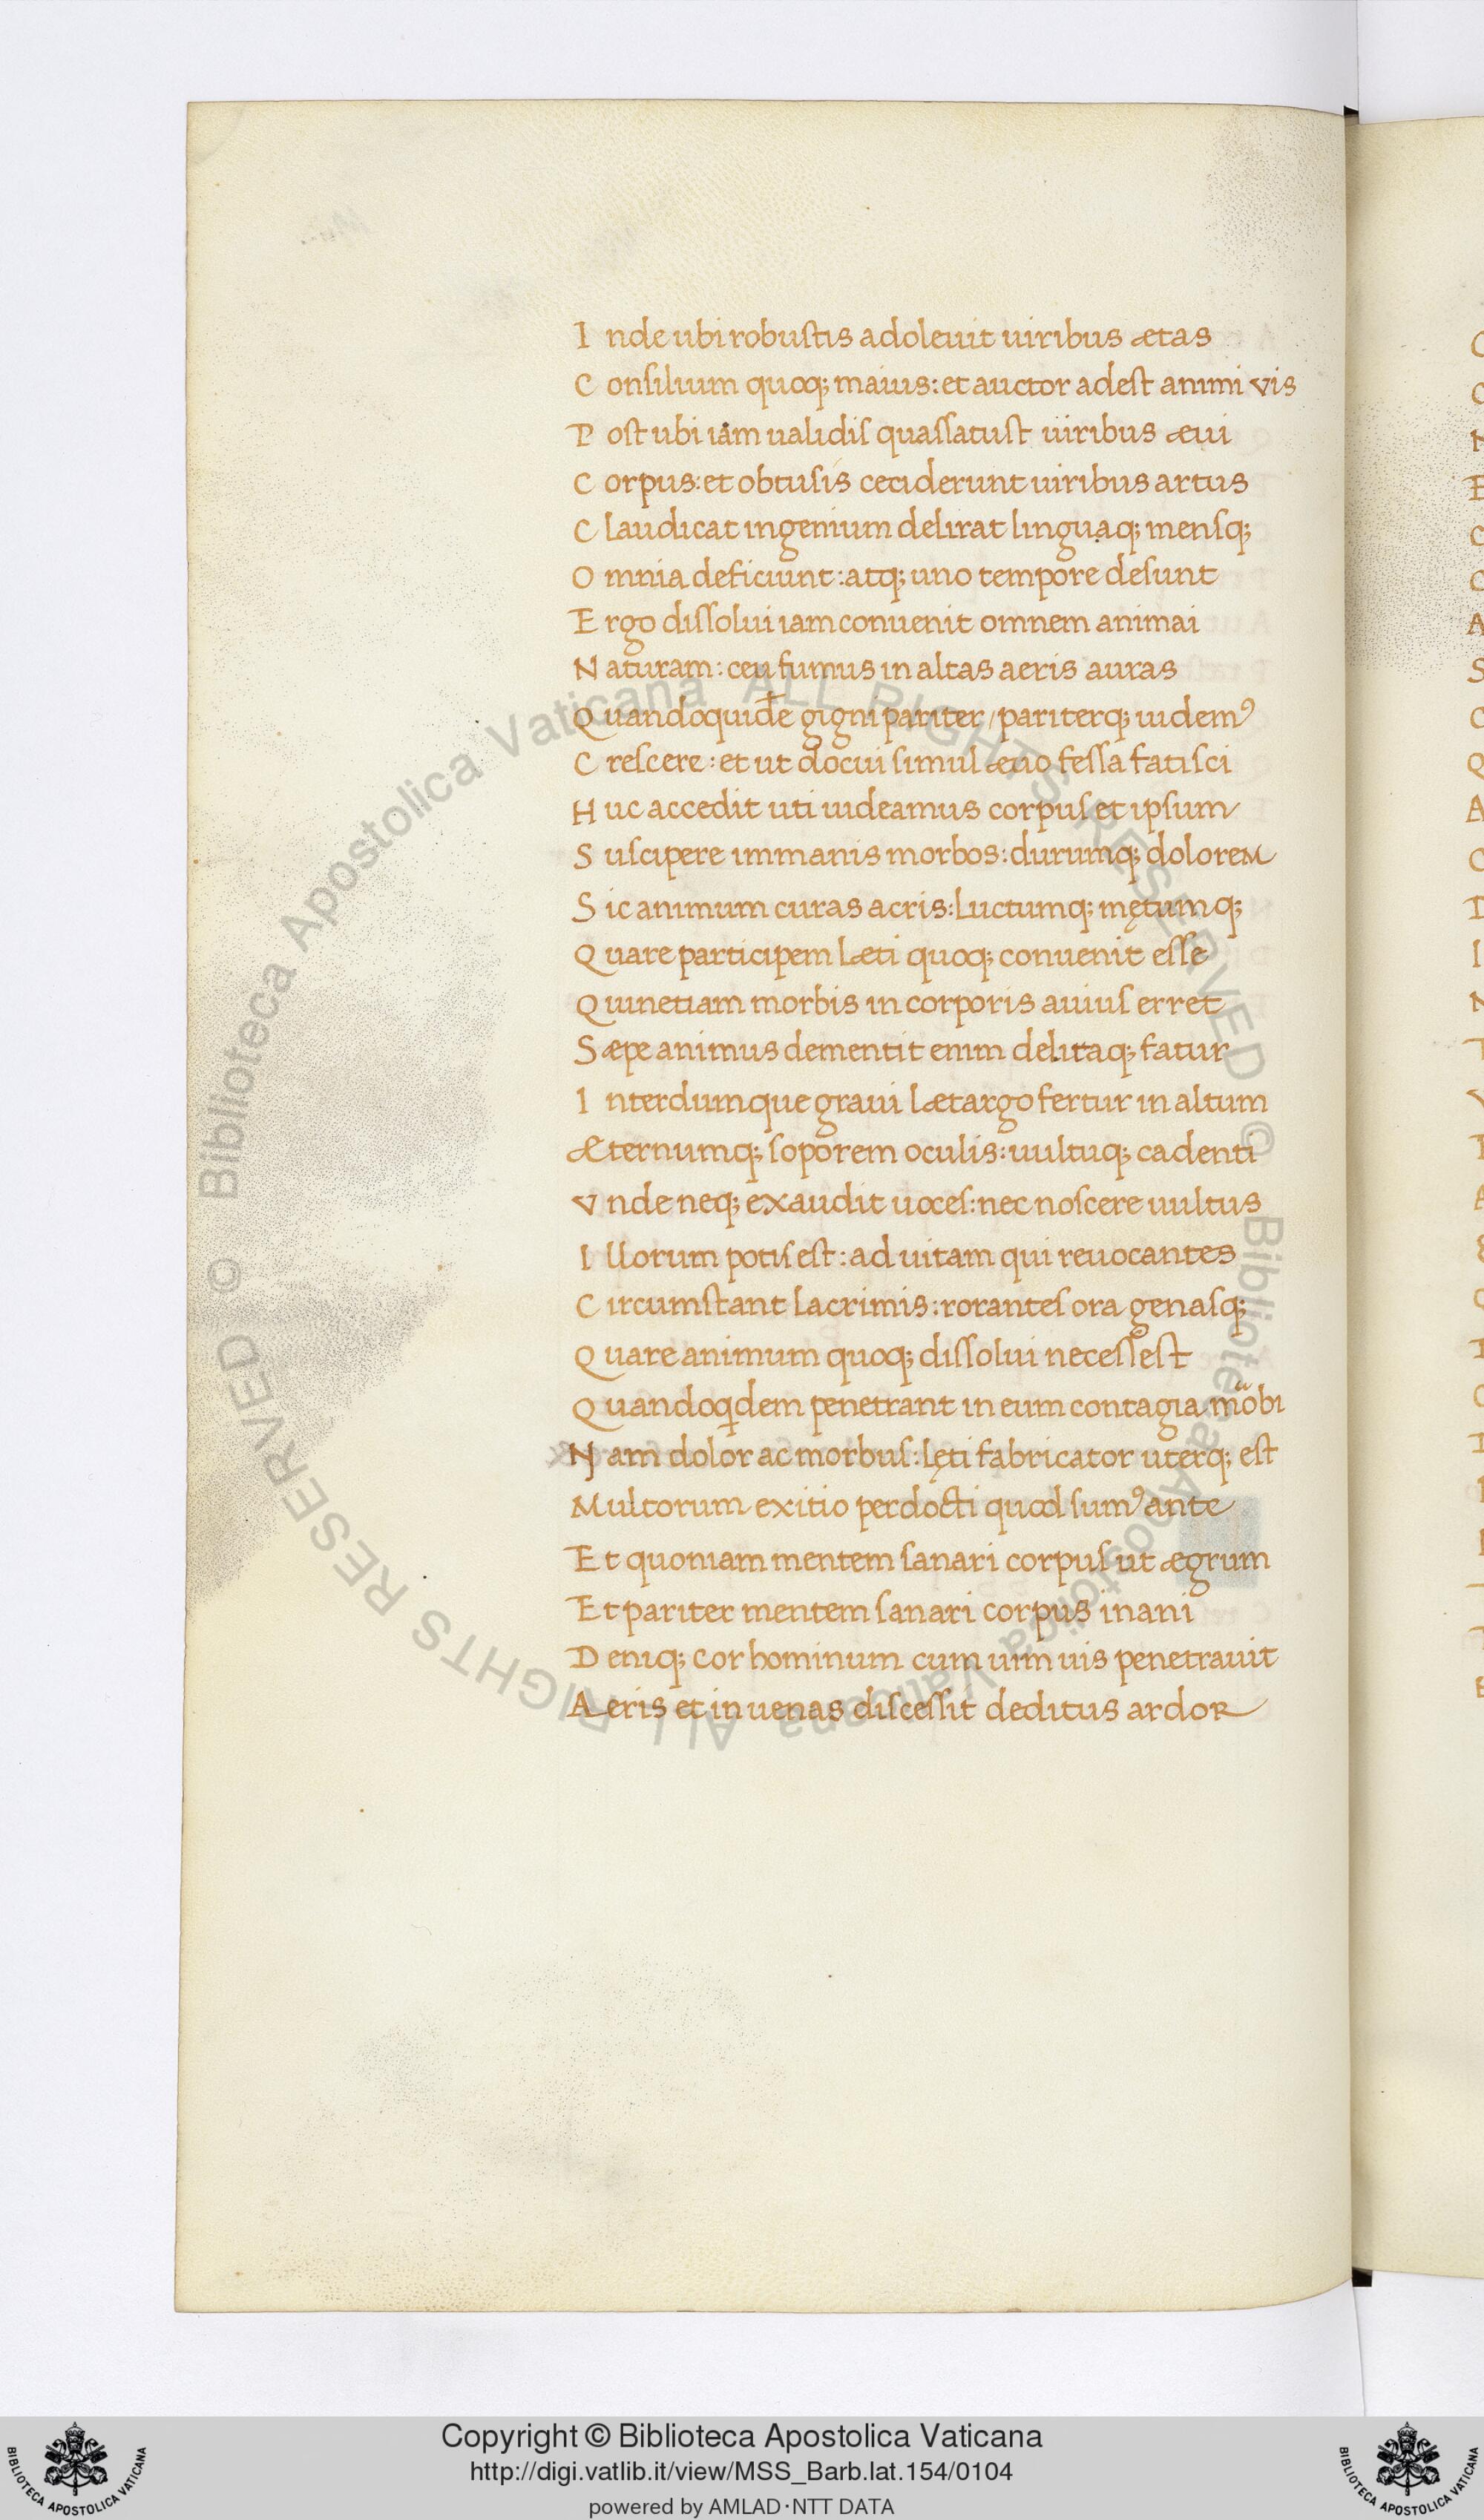 I nde ubi robustis adoleuit uiribus ætas
C onsilium quoq; maius: et auctor adest animi vis
P ost ubi iam ualidis quassatust uiribus æui
C orpus: et obtusis ceciderunt uiribus artus
C laudicat ingenium delirat linguaq; mensq;
O mnia deficiunt: atq; uno tempore desunt
E rgo dissolui iam conuenit omnem animai
N aturam: ceu fumus in altas aeris auras
Q uandoquidē gigni pariter / pariterq; uidemꝰ
C rescere: et ut docui simul æuo fessa fatisci
H uc accedit uti uideamus corpus et ipsum
S uscipere immanis morbos: durumq; dolorem
S ic animum curas acris: Luctumq; mętumq;
Q uare participem Læti quoq; conuenit esse
Q uinetiam morbis in corporis auius erret
S æpe animus dementit enim deliraq; fatur
I nterdumque graui Lætargo fertur in altum
Æternumq; soporem oculis: uultuq; cadenti
V nde neq; exaudit uoces: nec noscere uultus
I llorum potis est: ad uitam qui reuocantes
C ircumstant lacrimis: rorantes ora genasq;
Q uare animum quoq; dissolui necessest
Q uandoqdem penetrant in eum contagia mobi
N am dolor ac morbus: lęti fabricator uterq; est
Multorum exitio perdocti quod sumꝰ ante
Et quoniam mentem sanari corpus ut ægrum
Et pariter mentem sanari corpus inani
D eniq; cor hominum cum uim uis penetrauit
Aeris et in uenas discessit deditus ardor
© Biblioteca Apostolica Vaticana ALL RIGHTS RESERVED © Biblioteca Apostolica Vaticana ALL RIGHTS RESERVED
Copyright © Biblioteca Apostolica Vaticana
http://digi.vatlib.it/view/MSS_Barb.lat.154/0104
powered by AMLAD·NTT DATA
BIBLIOTECA APOSTOLICA VATICANA
BIBLIOTECA APOSTOLICA VATICANA